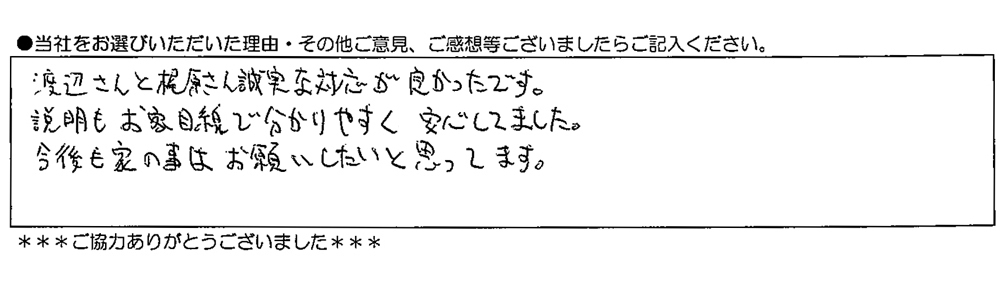 ●当社をお選びいただいた理由・その他ご意見、ご感想等ございましたらご記入ください。
渡辺さんと梶原さん誠実な対応が良かったです。
説明もお客目線で分かりやすく 安心してました。
今後も家の事はお願いしたいと思ってます。
＊＊＊ご協力ありがとうございました＊＊＊